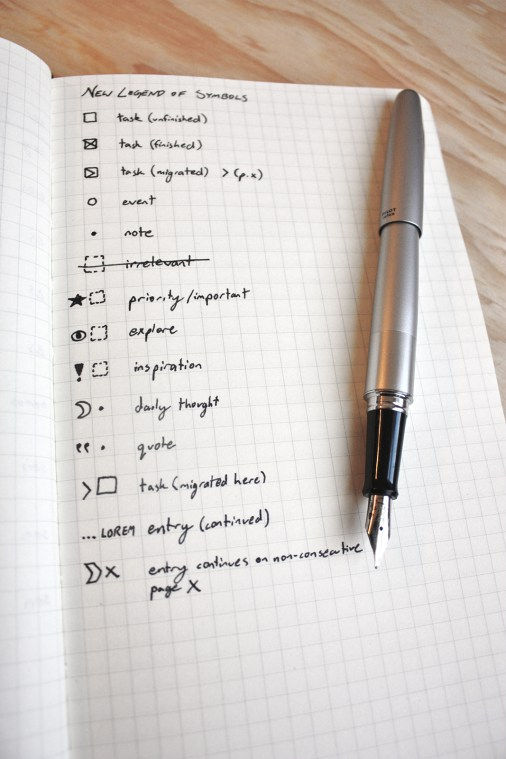 NEW LEGEND OF SYMBOLS
task (unfinished)
task (finished)
task (migrated) > (p.x)
event
note
irrelevant
priority/important
explore
! inspiration
daily thought
" quote
> task (migrated here)
... LOREM entry (continued)
X entry continues on non-consecutive
page X
PILOT
JAPAN